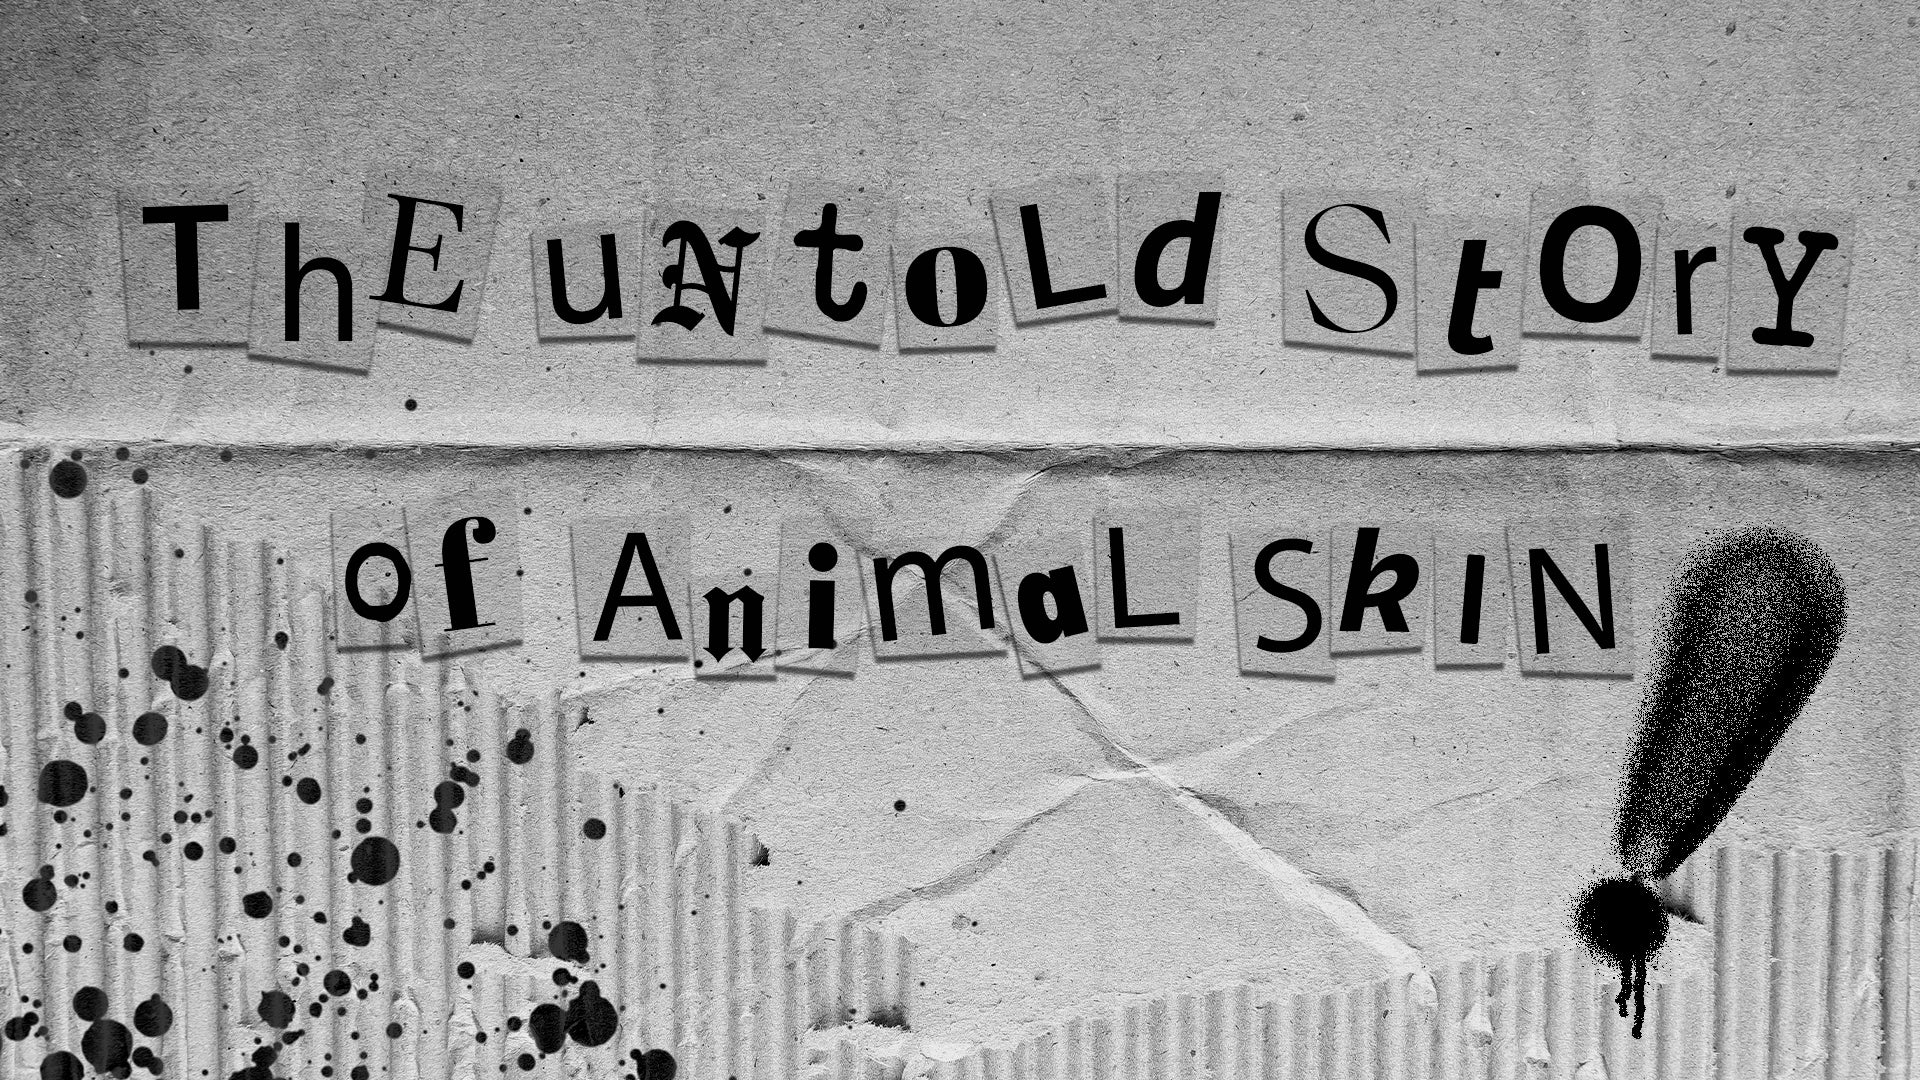 ThE uNtoLd StOrY
of AnimaL SkIN!